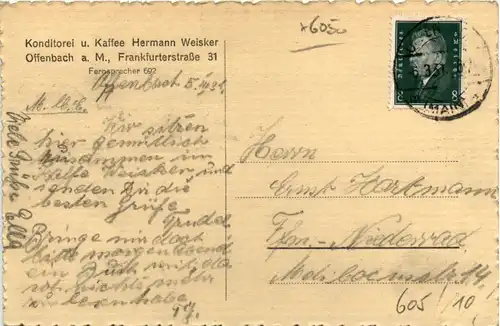 ×6050
Konditorei u. Kaffee Hermann Weisker
Offenbach a. M., Frankfurterstraße 31
Fernsprecher 692
Offenbach 5.
Wir sitzen
hier gemütlich
zusammen im
Kaffe Weisker und
senden Dir die
besten Grüße
Trudel
Bringe mir doch
bitte morgen Abend
ein Buch mit, da
ich nichts mehr
zu lesen habe.
Viele Grüße Elly
Deutsches Reich
8
8
Herrn
Ernst Hartmann
Ffm.-Niederrad
Melibocusstr. 14
605/10